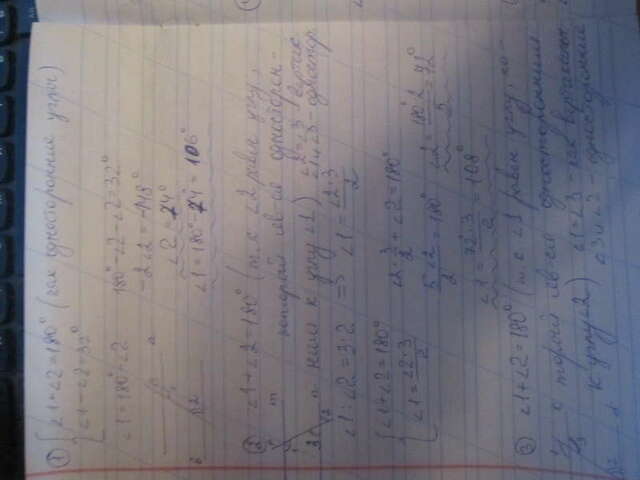 ① ∠1+∠2=180° (как односторонние углы)
∠1-∠2=32°
∠1=180°-∠2 180°-∠2-∠2=32°
-2∠2=-148°
a ∠2=74°
в ∠1=180°-74°=106°
② ∠1+∠2=180° (т.к ∠2 равен углу,
m который яв-ся односторон-
n ним к углу ∠1) ∠2=∠3 - вертик
∠1 и ∠3 - одностор
∠1:∠2=3:2 => ∠1=∠2·3/2
∠1+∠2=180° ∠2·3/2+∠2=180°
∠1=∠2·3/2
5∠2/2=180° ∠2=180°·2/5=72°
∠1=72°·3/2=108°
③ ∠1+∠2=180° (т.к ∠1 равен углу, ко-
c торый яв-ся односторонним
к углу ∠2) ∠1=∠3 - как вертикальные
∠3 и ∠2 - односторонние
d